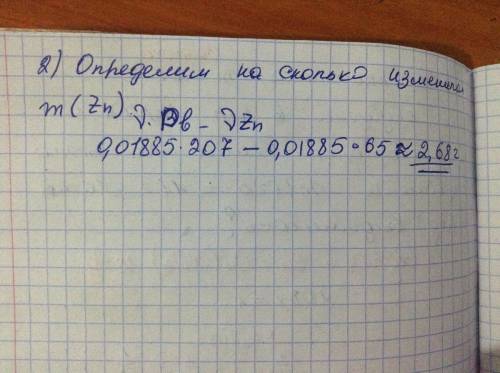 2) Определим на сколько изменили
m(Zn).
ν. Pb - νZn
0,01885·207 - 0,01885·65 ≈ 2,68г